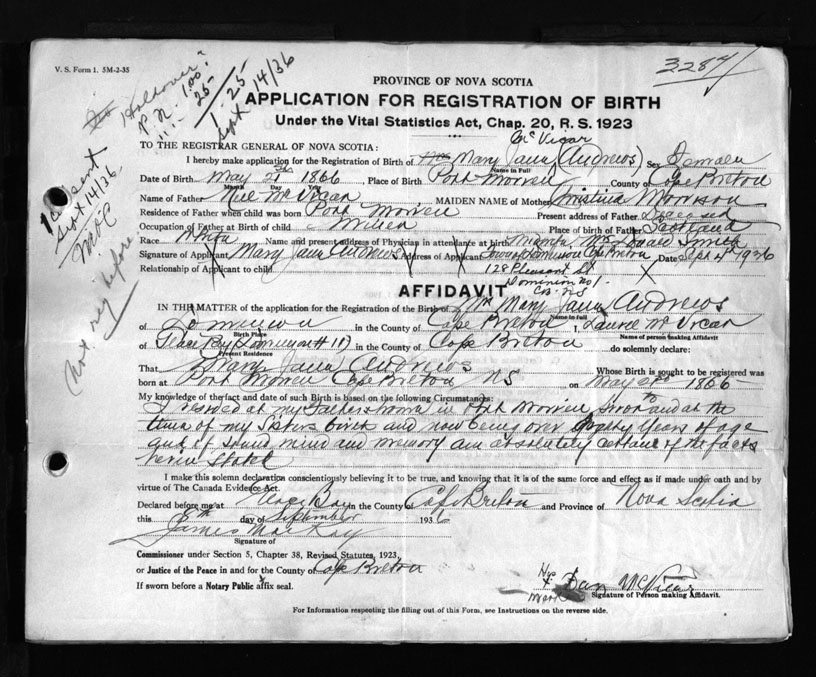 V. S. Form 1. 5M-2-35
3284
Holdover?
P.N. 1.00
25
1.25
Sept 14/36
PROVINCE OF NOVA SCOTIA
APPLICATION FOR REGISTRATION OF BIRTH
Under the Vital Statistics Act, Chap. 20, R. S. 1923
Sent
Sept 14/36
Not reg before
TO THE REGISTRAR GENERAL OF NOVA SCOTIA:
Mc Vicar
I hereby make application for the Registration of Birth of Mrs Mary Jane (Andrews) Sex Female
Name in Full
Date of Birth May 21st 1866 Place of Birth Port Morien County of Cape Breton
Month Day Year
Name of Father Neil McVicar MAIDEN NAME of Mother Christina Morrison
Residence of Father when child was born Port Morien Present address of Father Deceased
Occupation of Father at Birth of child Miner Place of birth of Father Scotland
Race White Name and present address of Physician in attendance at birth Midwife Mrs Donald Smith
Signature of Applicant Mary Jane Andrews Address of Applicant Town of Dominion Cape Breton Date Sept 4 1936
Relationship of Applicant to child 128 Pleasant St
Dominion No 1
CB. NS
AFFIDAVIT
IN THE MATTER of the application for the Registration of Birth of Mrs Mary Jane Andrews
Name in full
of Dominion in the County of Cape Breton, I, McVicar
Birth Place Name of person making Affidavit
of Glace Bay (Dominion # 11) in the County of Cape Breton do solemnly declare:
Present Residence
That Mary Jane Andrews Whose Birth is sought to be registered was
born at Port Morien Cape Breton NS on May 21st 1866
My knowledge of the fact and date of such Birth is based on the following Circumstances:
I resided at my Fathers home in Port Morien prior to and at the
time of my Sisters birth and now being over years of age
and of sound mind and memory am absolutely certain of the facts
herein stated
I make this solemn declaration conscientiously believing it to be true, and knowing that it is of the same force and effect as if made under oath and by
virtue of The Canada Evidence Act.
Declared before me at Glace Bay in the County of Cape Breton and Province of Nova Scotia
this 8th day of September 1936
James MacKay
Signature of
Commissioner under Section 5, Chapter 38, Revised Statutes, 1923,
or Justice of the Peace in and for the County of Cape Breton
If sworn before a Notary Public affix seal.
His
X Dan McVicar
Mark
Signature of Person making Affidavit.
For Information respecting the filling out of this Form, see Instructions on the reverse side.